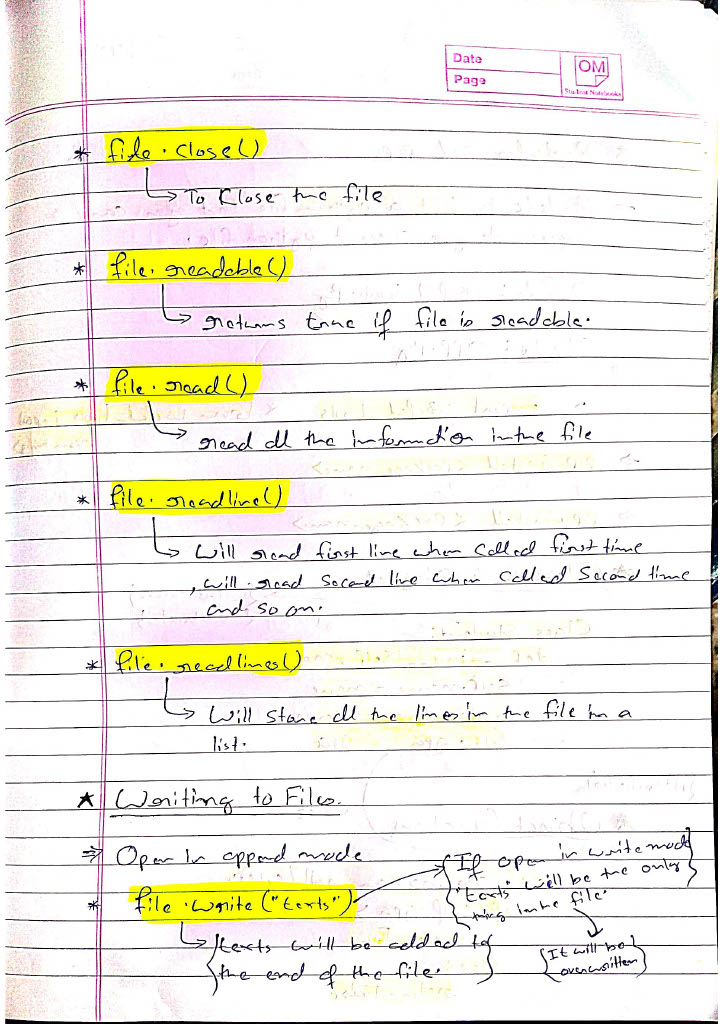 Date
Page
OM
Student Notebooks
* file.close()
To Close the file
* file.readable()
returns true if file is readable.
* file.read()
read all the information in the file
* file.readline()
Will read first line when called first time
, will read second line when called second time
and so on.
* file.readlines()
Will store all the lines in the file in a
list.
* Writing to Files.
⇒ Open in append mode
* file.write("texts")
texts will be added to
the end of the file.
If open in write mode
"texts" will be the only
thing in the file.
It will be
overwritten